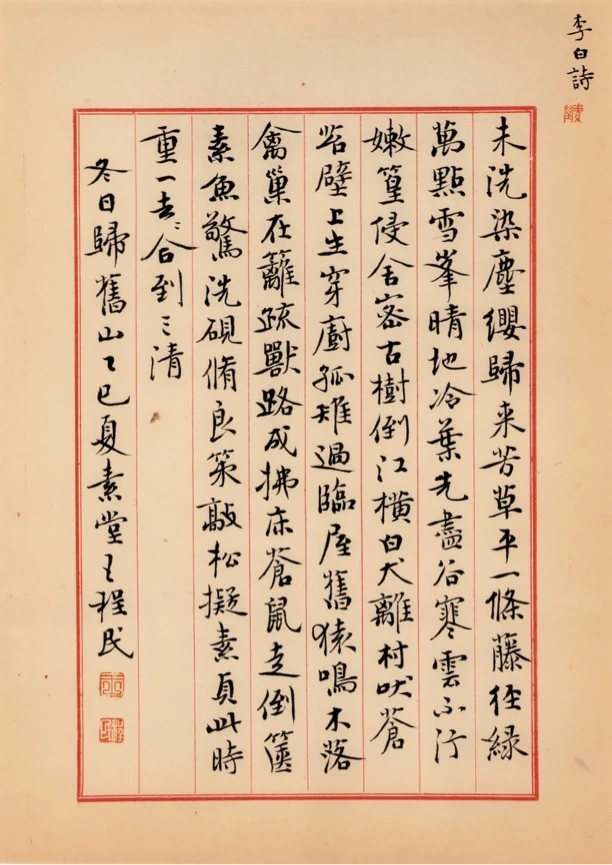 李白詩
未洗染塵纓歸来芳草平一條藤徑緑
萬點雪峯晴地冷葉先盡谷寒雲不行
嫩篁侵舍密古樹倒江横白犬離村吠蒼
苔壁上生穿廚孤雉過臨屋舊猿鳴木落
禽巢在籬疏獸路成拂床蒼鼠走倒篋
素魚驚洗硯脩良策敲松擬素貞此時
重一去〻合到三清
冬日歸舊山乙巳夏素堂王程民